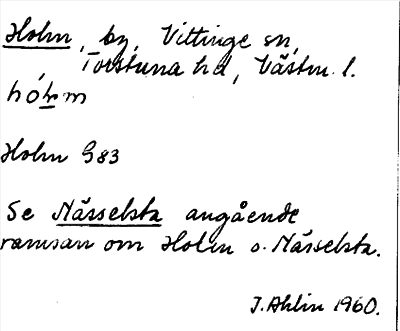 Holm, by, Vittinge sn,
Torstuna hd, Västm. l.
hó̀lm
Holm G83
Se Nässelsta angående
ramsan om Holm o. Nässelsta.
J. Ahlin 1960.